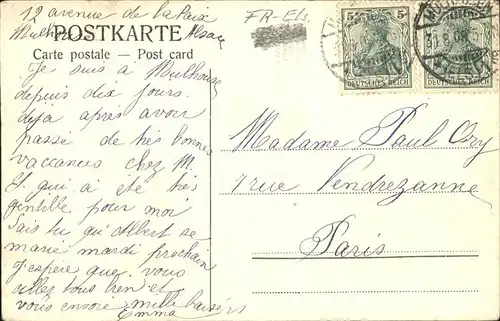 12 avenue de la Paix
Mulhouse Alsace
POSTKARTE
Carte postale — Post card
FR-Els.
5 5
DEUTSCHES REICH
DEUTSCHES REICH
31.8.08
Je suis à Mulhouse
depuis dix jours.
déja après avoir
passé de très bonnes
vaccances chez M.
qui a été très
gentille pour moi
Sais tu qu'Albert se
marie mardi prochain
J'espère que vous
allez tous bien et
vous envoie mille baisers
Emma
Madame Paul Ory
rue Vendrezanne
Paris